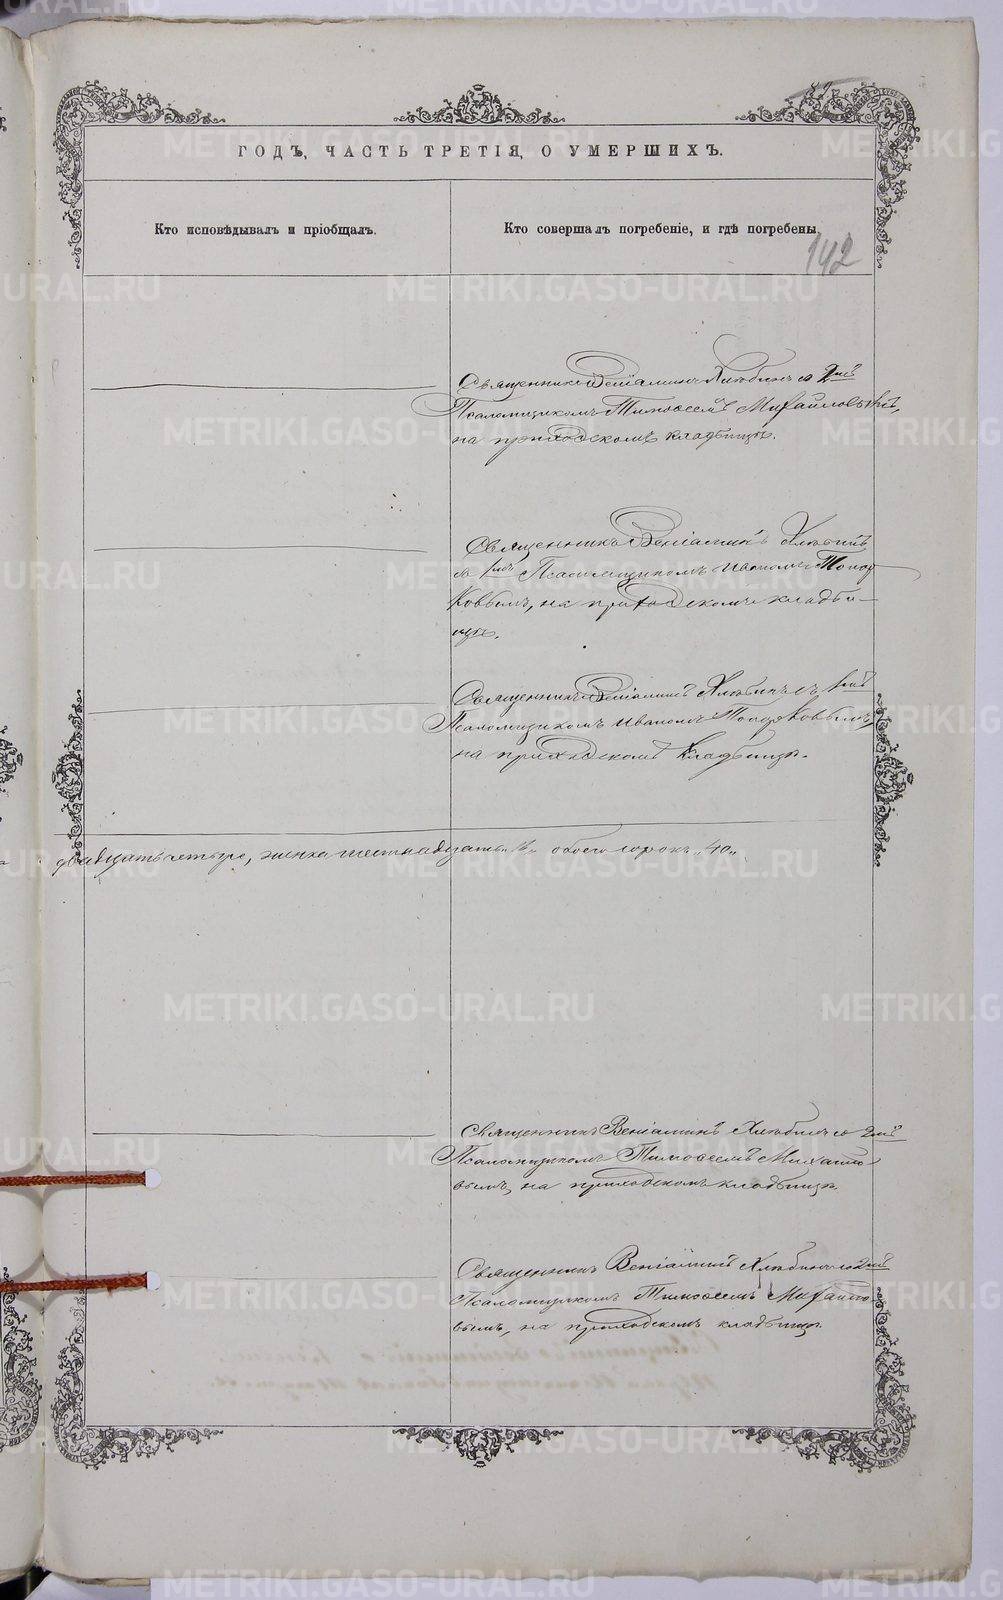 ГОДЪ, ЧАСТЬ ТРЕТІЯ, О УМЕРШИХЪ.
Кто исповѣдывалъ и пріобщалъ.
Кто совершалъ погребеніе, и гдѣ погребены.
142
Священникъ Веніаминъ Хлюбинъ со 2мъ
Псаломщикомъ Тимоѳеемъ Михайловымъ,
на приходскомъ кладбищѣ.
Священникъ Веніаминъ Хлюбинъ
съ 1мъ Псаломщикомъ Иваномъ Топор-
ковымъ, на приходскомъ кладби-
щѣ.
Священникъ Веніаминъ Хлюбинъ съ 1мъ
Псаломщикомъ Иваномъ Топорковымъ,
на приходскомъ кладбищѣ.
двадцать четыре, женска шестнадцать "16" обоего сорокъ "40"
Священникъ Веніаминъ Хлюбинъ со 2мъ
Псаломщикомъ Тимоѳеемъ Михайло-
вымъ, на приходскомъ кладбищѣ.
Священникъ Веніаминъ Хлюбинъ со 2мъ
Псаломщикомъ Тимоѳеемъ Михайло-
вымъ, на приходскомъ кладбищѣ.
METRIKI.GASO-URAL.RU